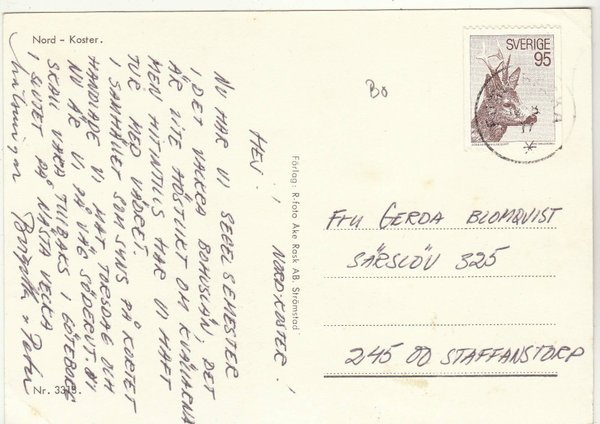 Nord – Koster.
HEJ!
NORDKOSTER!
NU HAR VI SEGELSEMESTER
I DET VACKRA BOHUSLÄN, DET
ÄR LITE HÖSTLIKT OM KVÄLLARNA
MEN HITTILLS HAR VI HAFT
TUR MED VÄDRET.
I SAMHÄLLET SOM SYNS PÅ KORTET
HANDLADE VI MAT TORSDAG OCH
NU ÄR VI PÅ VÄG SÖDERUT. VI
SKALL VARA TILLBAKS I GÖTEBORG
I SLUTET PÅ NÄSTA VECKA
Hälsningar
Nr. 3313.
Förlag: R-foto Åke Resk AB Strömstad
BO
SVERIGE
95
FRU GERDA BLOMQVIST
SÄRSLÖV 325
245 00 STAFFANSTORP